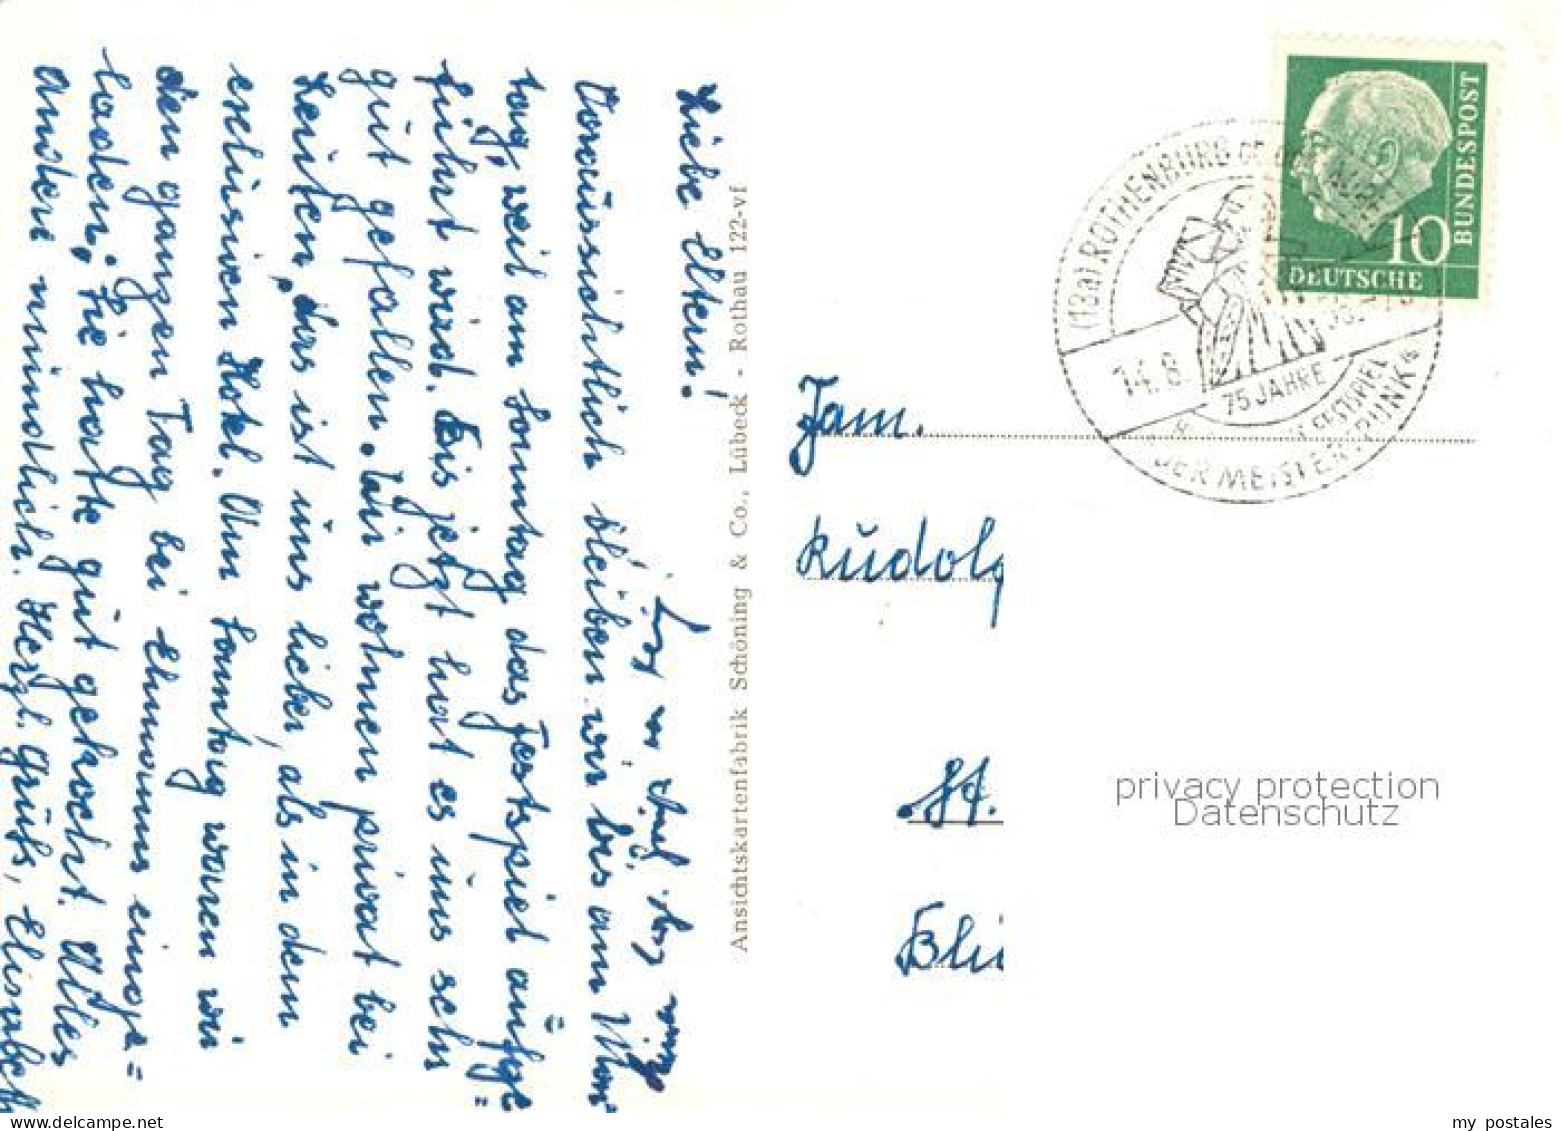 Liebe Eltern!
Voraussichtlich bleiben wir bis am Mon
tag, weil am Sonntag das Festspiel aufge=
führt wird. Bis jetzt hat es uns sehr
gut gefallen. Wir wohnen privat bei
Leuten, das ist uns lieber, als in dem
exklusiven Hotel. Am Sonntag waren wir
den ganzen Tag bei Ehmanns einge=
laden; Sie hatte gut gekocht. Alles
andere mündlich. Herzl. Grüße, Elisabeth
Ansichtskartenfabrik Schöning & Co., Lübeck - Rothau 122-vf
(13a) ROTHENBURG OB DER TAUBER
14. 8
75 JAHRE
FESTSPIEL
DER MEISTERTRUNK
10
DEUTSCHE
BUNDESPOST
Fam.
Rudolp
St.
Bli
privacy protection
Datenschutz
my postales